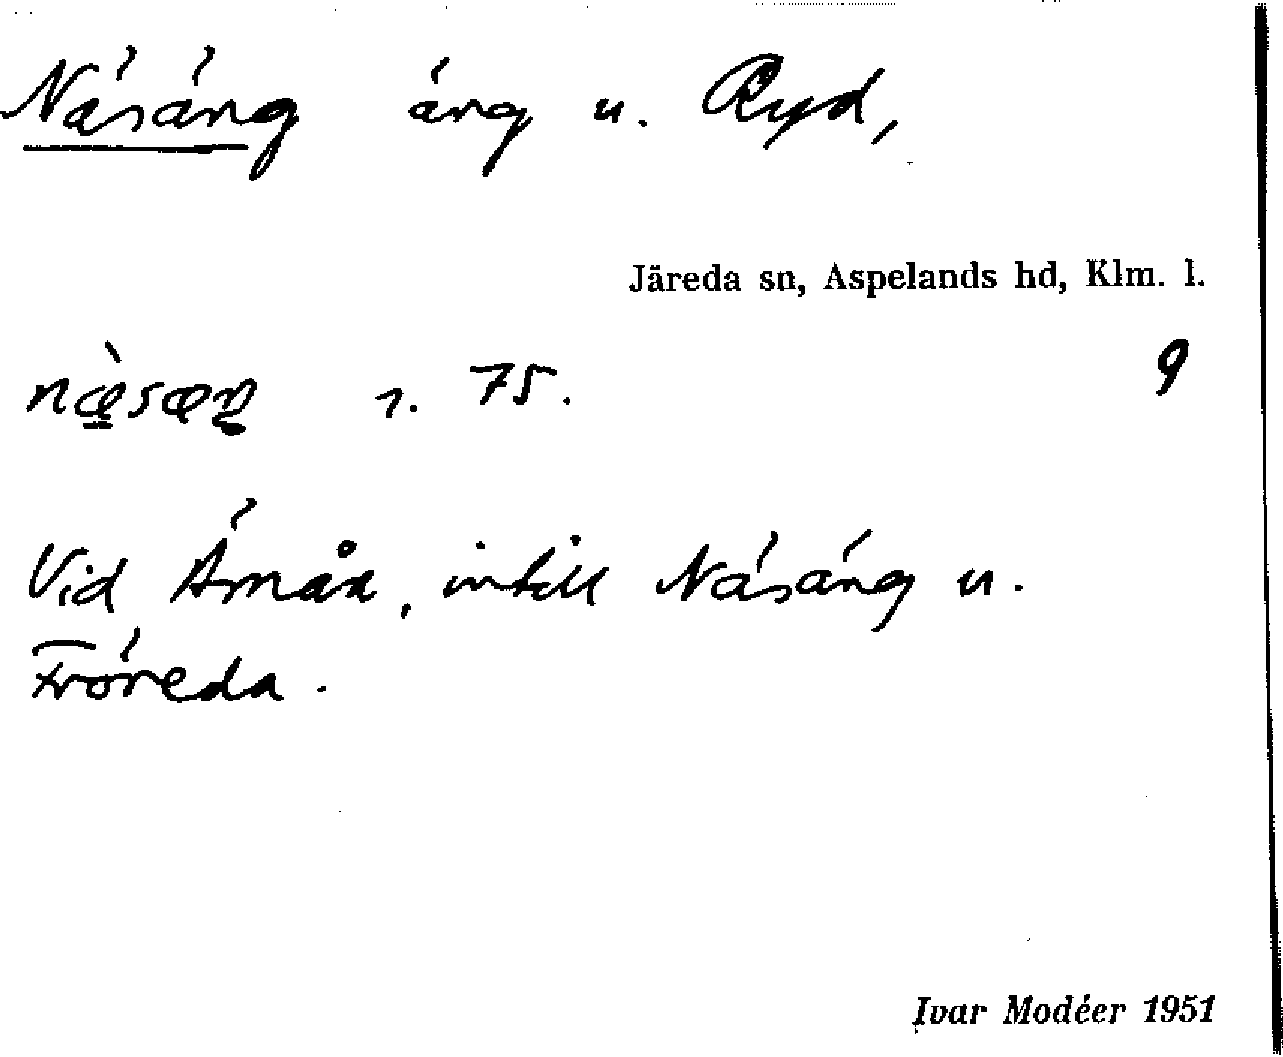 Näsäng äng u. Ryd,
Järeda sn, Aspelands hd, Klm. l.
næ̀sæŋ r. 75. 9
Vid Åmån, intill Näsäng u.
Fröreda.
Ivar Modéer 1951